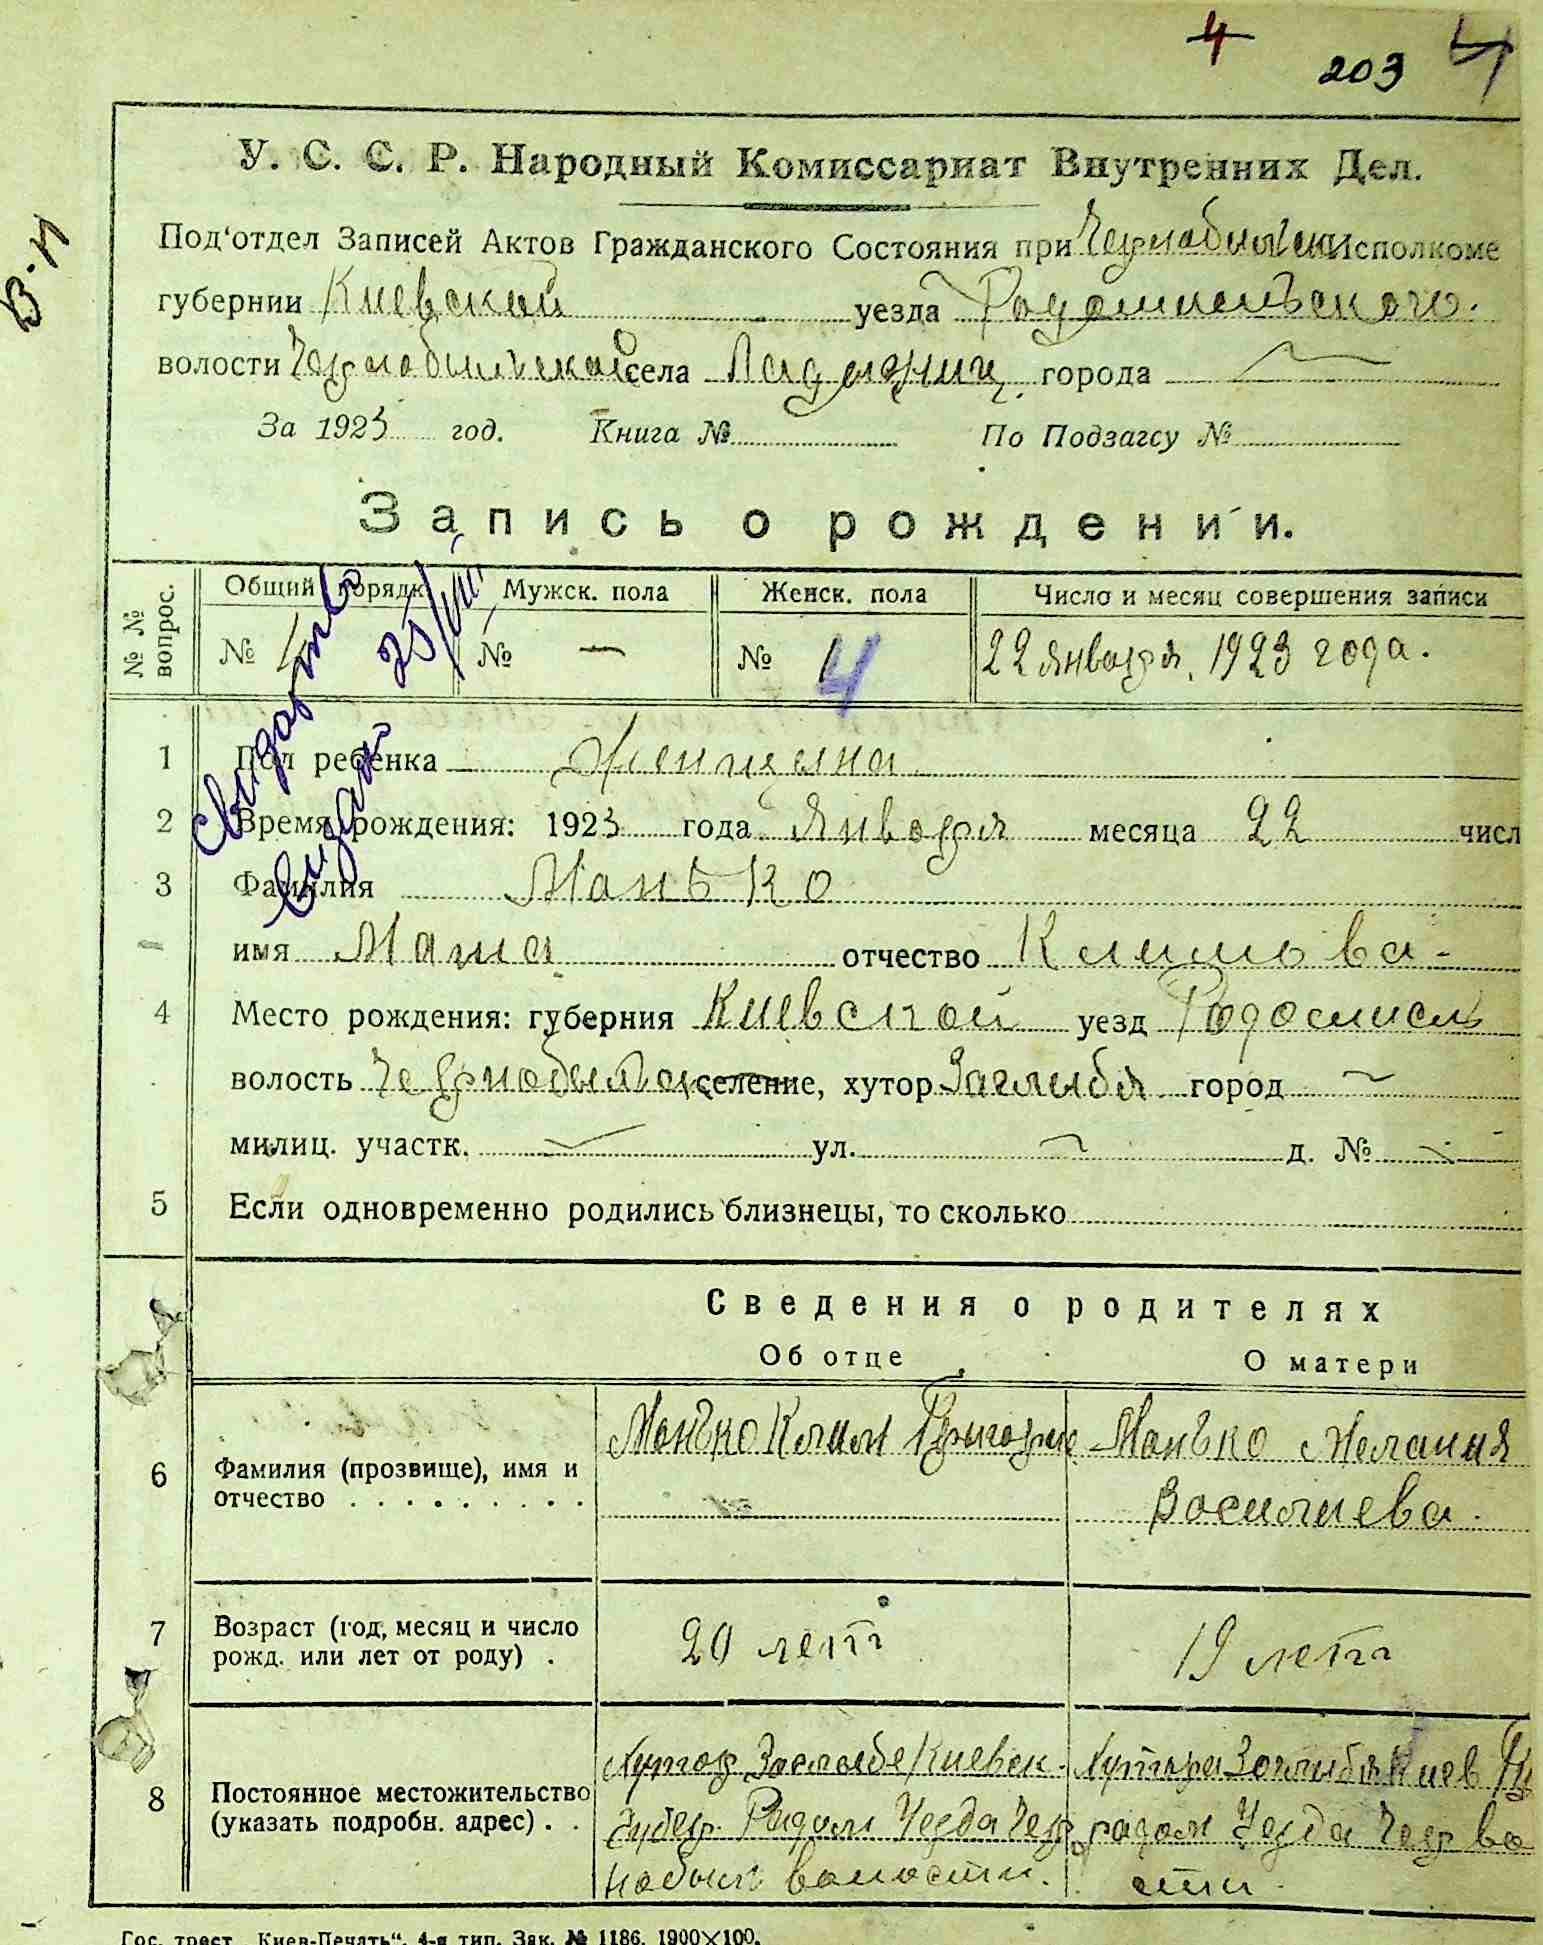 4
203 4
В-И
У. С. С. Р. Народный Комиссариат Внутренних Дел.
Под'отдел Записей Актов Гражданского Состояния при исполкоме
губернии Киевской уезда Радомисльского.
волости Чернобильской села города
За 1923 год. Книга № По Подзагсу №
Запись о рождении.
№ № вопрос.
Общий порядк. Мужск. пола Женск. пола Число и месяц совершения записи
№ 4 № — № 4 22 января, 1923 года.
Видано 25/VIII
1 Пол ребенка Женщена
2 Время рождения: 1923 года Января месяца 22 числ
3 Фамилия Манько
имя Маня отчество Климова-
4 Место рождения: губерния Киевской уезд Радомисль
волость селение, хутор Заглыбя город —
милиц. участк. — ул. — д. № —
5 Если одновременно родились близнецы, то сколько
Сведения о родителях
Об отце О матери
6 Фамилия (прозвище), имя и отчество . . . . . . . . .
Манько Клим Григорие
Манько Мелания
Василиева.
7 Возраст (год, месяц и число рожд. или лет от роду) .
20 летъ
19 летъ
8 Постоянное местожительство (указать подробн. адрес) . .
Хутор Заглыбе Киевск.
Губер. Радом Уезда Чер
нобыл волости.
Хутора Заглибя Киев Гу
радом Уезда Чер во
сти.
Гос. трест „Киев-Печать", 4-я тип. Зак. № 1186. 1900×100.